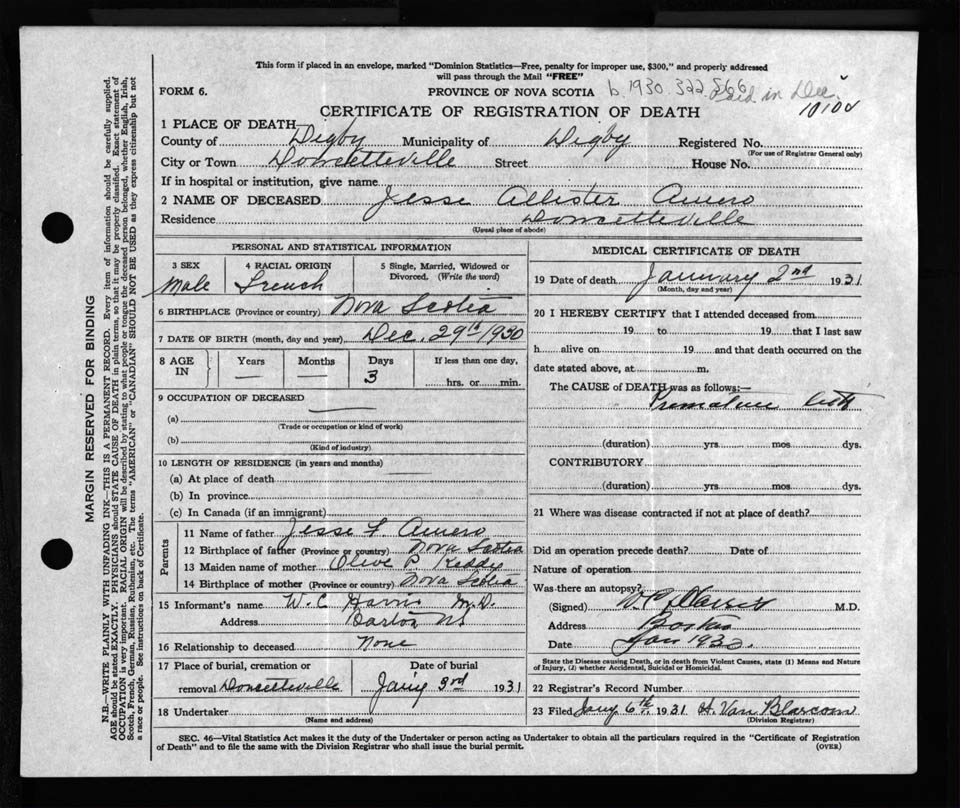 This form if placed in an envelope, marked "Dominion Statistics—Free, penalty for improper use, $300," and properly addressed
will pass through the Mail "FREE"
FORM 6. PROVINCE OF NOVA SCOTIA b. 1930. 322 in Dec.
CERTIFICATE OF REGISTRATION OF DEATH
1 PLACE OF DEATH
County of Digby Municipality of Digby Registered No.
(For use of Registrar General only)
City or Town Doucetteville Street House No.
If in hospital or institution, give name
2 NAME OF DECEASED Jesse Allister Amero
Residence Doucetteville
(Usual place of abode)
PERSONAL AND STATISTICAL INFORMATION
3 SEX 4 RACIAL ORIGIN 5 Single, Married, Widowed or
Divorced. (Write the word)
Male French
6 BIRTHPLACE (Province or country) Nova Scotia
7 DATE OF BIRTH (month, day and year) Dec. 29th 1930
8 AGE IN Years Months Days If less than one day,
— — 3 hrs. or min.
9 OCCUPATION OF DECEASED
(a)
(Trade or occupation or kind of work)
(b)
(Kind of industry)
10 LENGTH OF RESIDENCE (in years and months)
(a) At place of death
(b) In province
(c) In Canada (if an immigrant)
Parents
11 Name of father Jesse F. Amero
12 Birthplace of father (Province or country) Nova Scotia
13 Maiden name of mother Olive P. Keddy
14 Birthplace of mother (Province or country) Nova Scotia
15 Informant's name W. C. Harris M.D.
Address Barton NS
16 Relationship to deceased None
17 Place of burial, cremation or Date of burial
removal Doucetteville Jany 3rd 1931
18 Undertaker
(Name and address)
MEDICAL CERTIFICATE OF DEATH
19 Date of death January 2nd 1931
(Month, day and year)
20 I HEREBY CERTIFY that I attended deceased from
19 to 19 that I last saw
h alive on 19 and that death occurred on the
date stated above, at m.
The CAUSE of DEATH was as follows:—
Premature birth
(duration) yrs mos dys.
CONTRIBUTORY
(duration) yrs mos dys.
21 Where was disease contracted if not at place of death?
Did an operation precede death? Date of
Nature of operation
Was there an autopsy?
(Signed) M.D.
Address Barton
Date Jan
State the Disease causing Death, or in death from Violent Causes, state (1) Means and Nature
of Injury, (2) whether Accidental, Suicidal or Homicidal.
22 Registrar's Record Number
23 Filed Jany 6th 1931 H. Van Blarcom
(Division Registrar)
SEC. 46—Vital Statistics Act makes it the duty of the Undertaker or person acting as Undertaker to obtain all the particulars required in the "Certificate of Registration
of Death" and to file the same with the Division Registrar who shall issue the burial permit. (OVER)
MARGIN RESERVED FOR BINDING
N.B.—WRITE PLAINLY WITH UNFADING INK—THIS IS A PERMANENT RECORD. Every item of information should be carefully supplied.
AGE should be stated EXACTLY. PHYSICIANS should STATE CAUSE OF DEATH in plain terms, so that it may be properly classified. Exact statement of
OCCUPATION is very important. RACIAL ORIGIN will be described by stating to what people or tongue the deceased person belonged, whether English, Irish,
Scotch, French, German, Russian, Ruthenian, etc. The terms "AMERICAN" or "CANADIAN" SHOULD NOT BE USED as they express citizenship but not
a race or people. See instructions on back of Certificate.